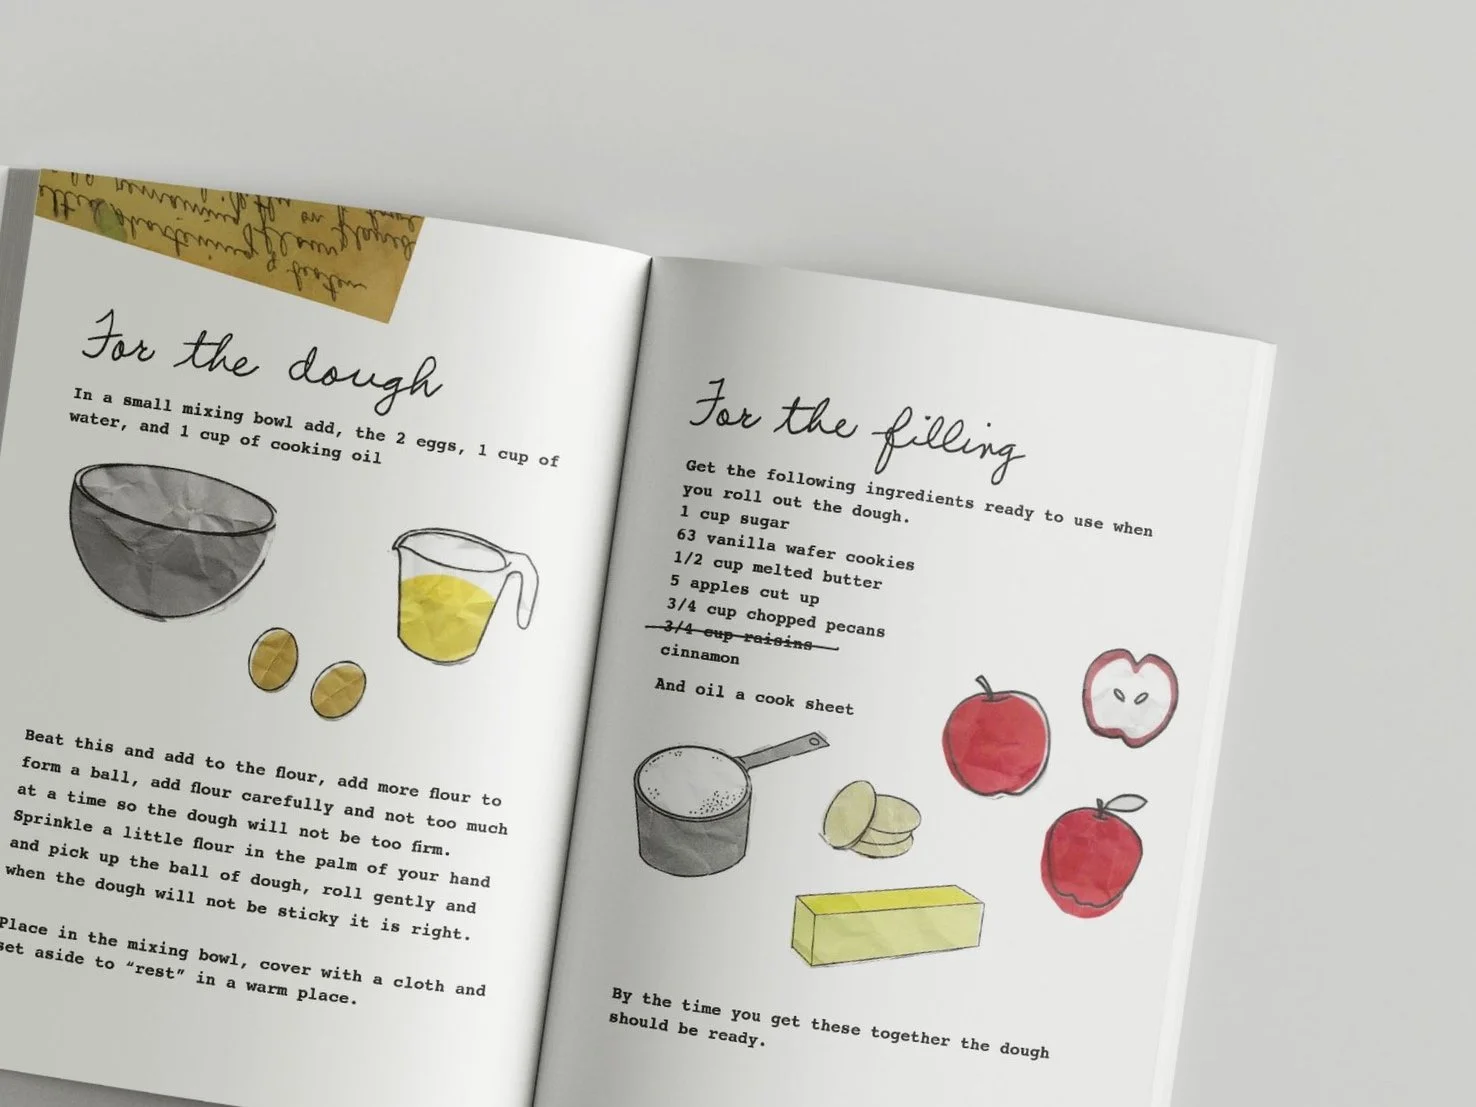 For the dough
In a small mixing bowl add, the 2 eggs, 1 cup of
water, and 1 cup of cooking oil
Beat this and add to the flour, add more flour to
form a ball, add flour carefully and not too much
at a time so the dough will not be too firm.
Sprinkle a little flour in the palm of your hand
and pick up the ball of dough, roll gently and
when the dough will not be sticky it is right.
Place in the mixing bowl, cover with a cloth and
set aside to “rest” in a warm place.
For the filling
Get the following ingredients ready to use when
you roll out the dough.
1 cup sugar
63 vanilla wafer cookies
1/2 cup melted butter
5 apples cut up
3/4 cup chopped pecans
3/4 cup raisins
cinnamon
And oil a cook sheet
By the time you get these together the dough
should be ready.